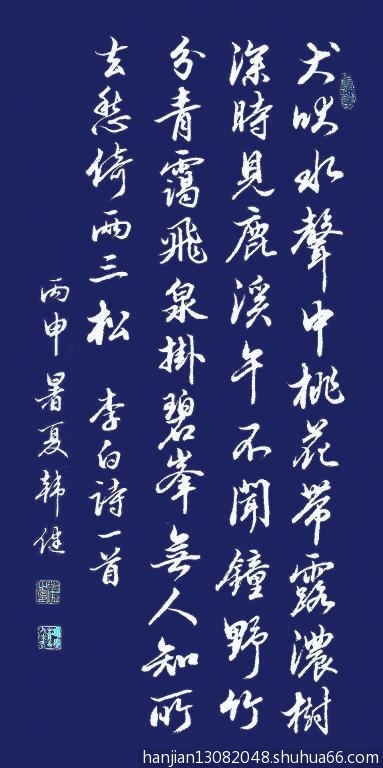 犬吠水聲中桃花帶露濃樹
深時見鹿溪午不聞鐘野竹
分青靄飛泉掛碧峯無人知所
去愁倚兩三松 李白詩一首
丙申暑夏韩健
hanjian13082048.shuhua66.com